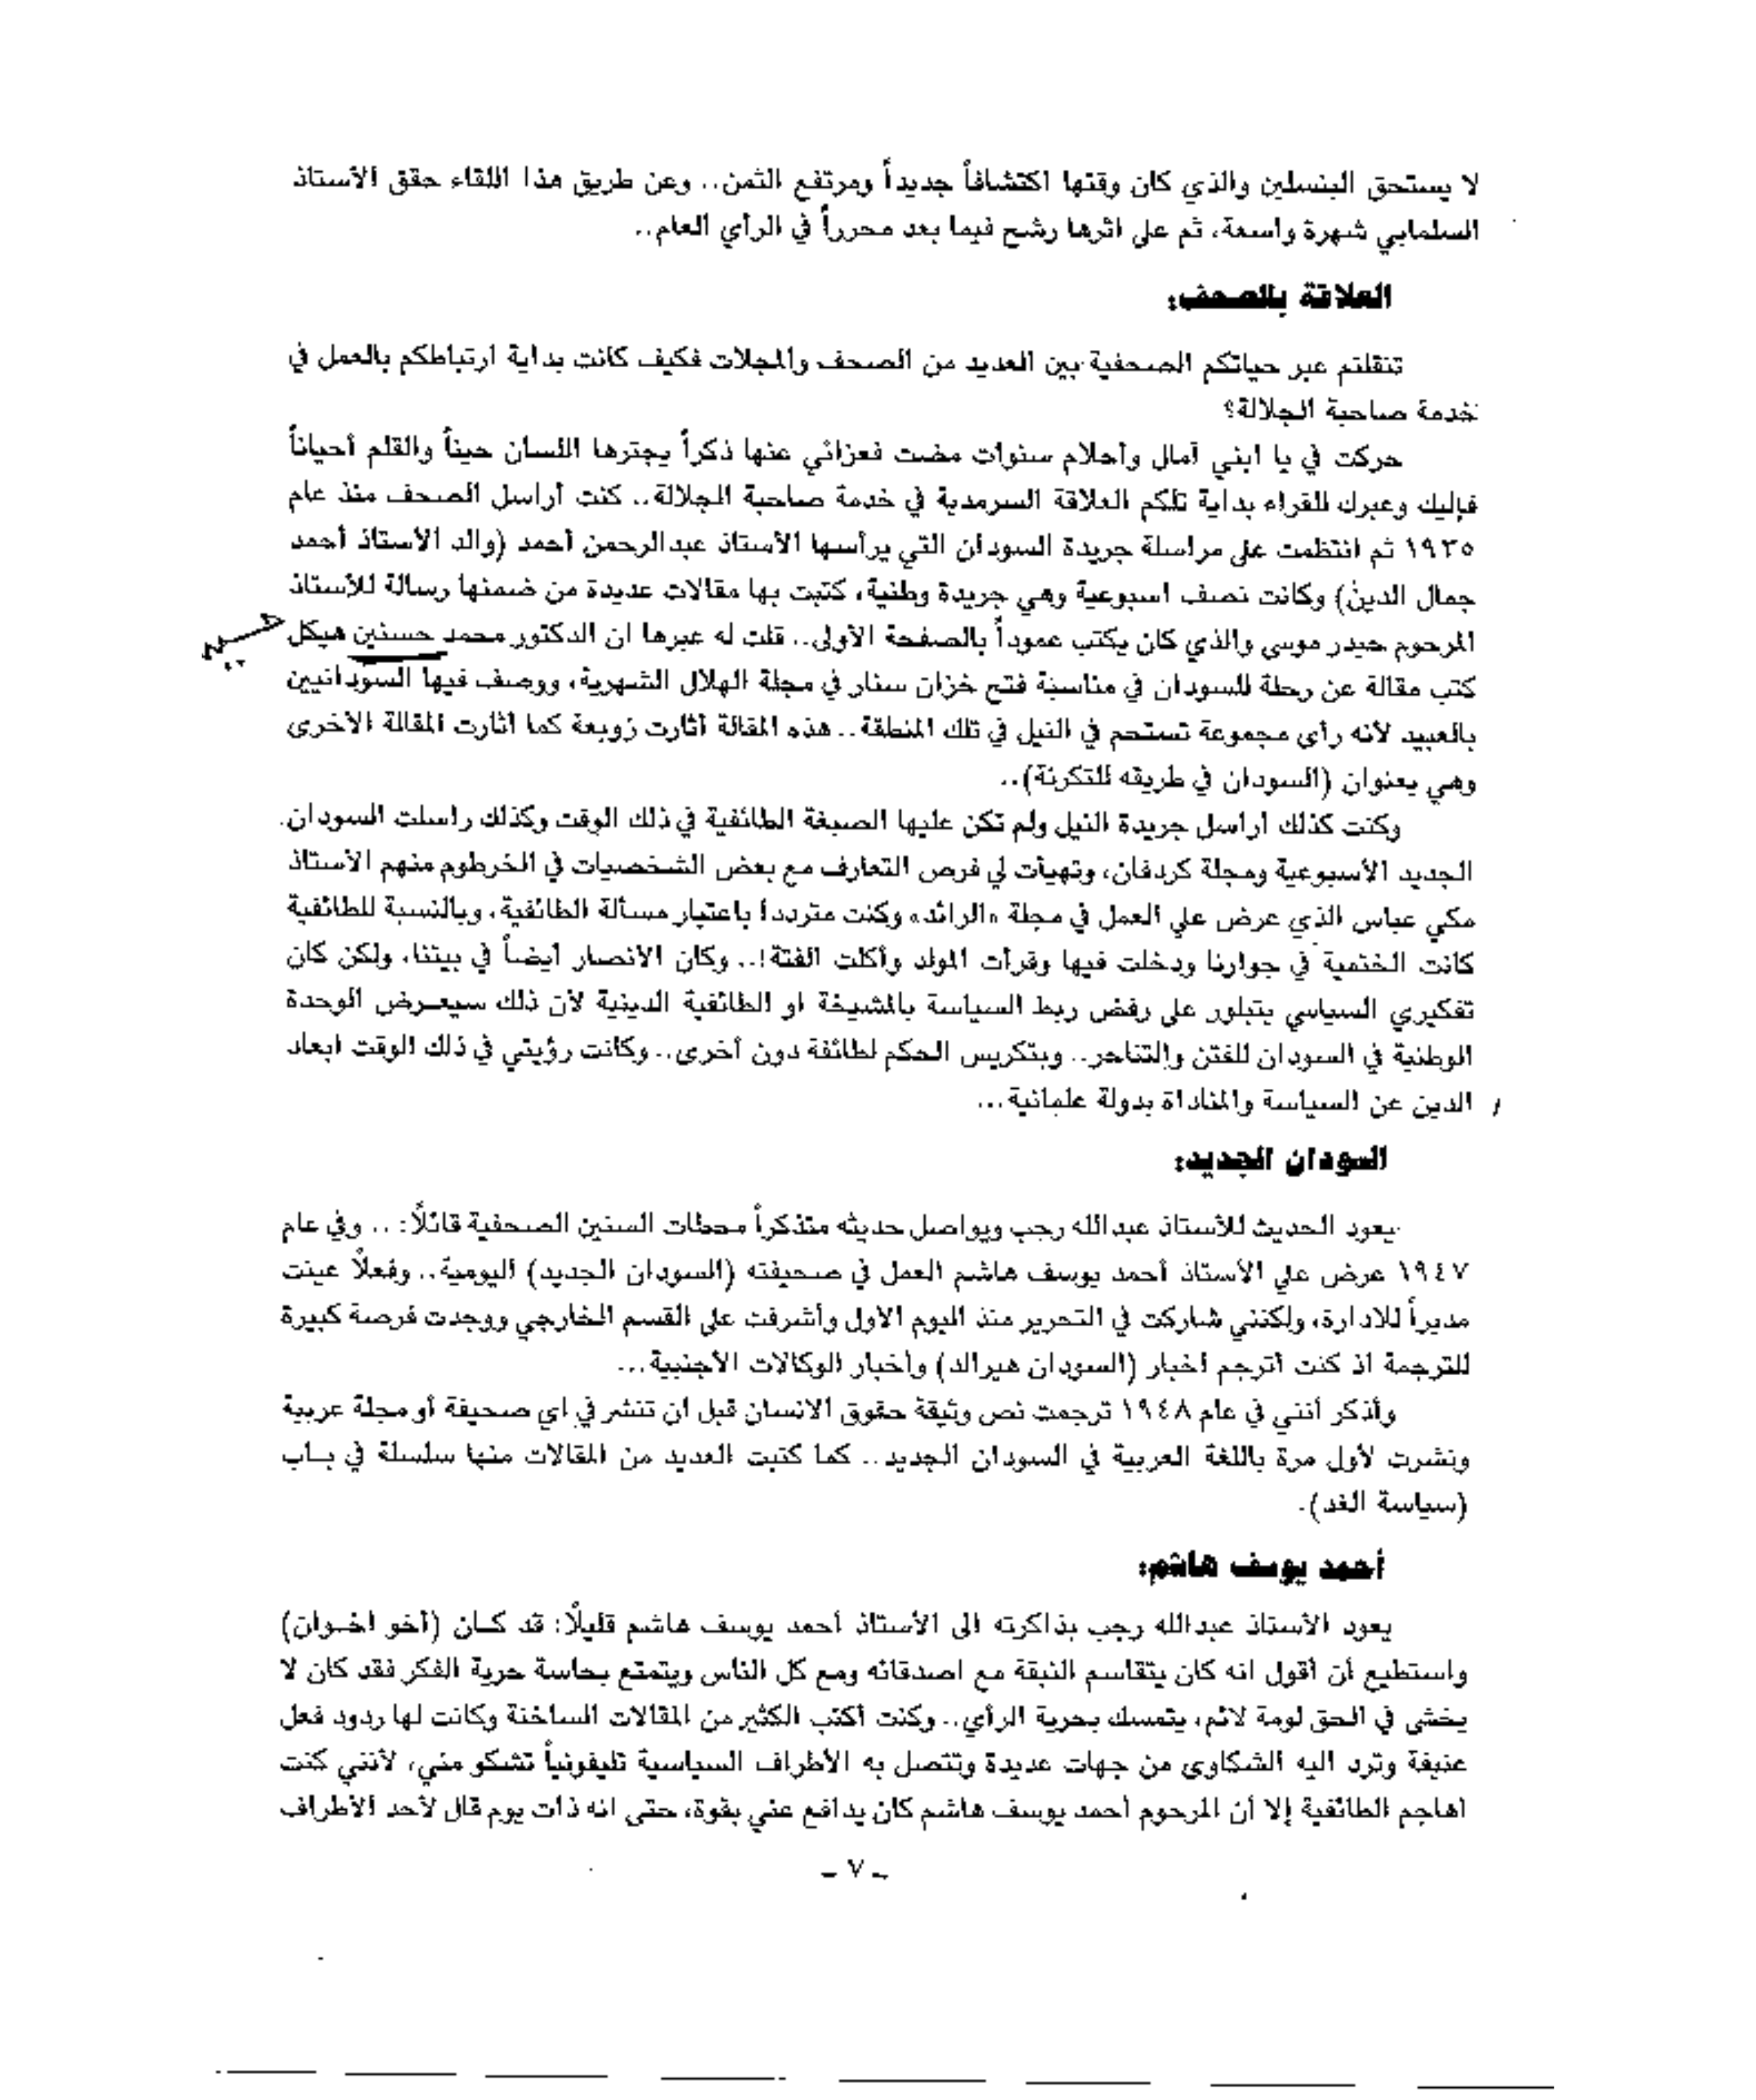 لا يستحق البنسلين والذي كان وقتها اكتشافاً جديداً ومرتفع الثمن.. وعن طريق هذا اللقاء حقق الأستاذ
السلمابي شهرة واسعة، ثم على اثرها رشح فيما بعد محرراً في الرأي العام..
العلاقة بالصحف:
تنقلتم عبر حياتكم الصحفية بين العديد من الصحف والمجلات فكيف كانت بداية ارتباطكم بالعمل في
خدمة صاحبة الجلالة؟
حركت في يا ابني آمال وأحلام سنوات مضت فعزائي عنها ذكراً يجترها اللسان حيناً والقلم أحياناً
فإليك وعبرك للقراء بداية تلكم العلاقة السرمدية في خدمة صاحبة الجلالة.. كنت أراسل الصحف منذ عام
١٩٣٥ ثم انتظمت على مراسلة جريدة السودان التي يرأسها الأستاذ عبدالرحمن أحمد (والد الأستاذ أحمد
جمال الدين) وكانت نصف اسبوعية وهي جريدة وطنية، كتبت بها مقالات عديدة من ضمنها رسالة للأستاذ
المرحوم حيدر موسى والذي كان يكتب عموداً بالصفحة الأولى.. قلت له عبرها ان الدكتور محمد حسنين هيكل
كتب مقالة عن رحلة للسودان في مناسبة فتح خزان سنار في مجلة الهلال الشهرية، ووصف فيها السودانيين
بالعبيد لأنه رأى مجموعة تستحم في النيل في تلك المنطقة.. هذه المقالة أثارت زوبعة كما أثارت المقالة الأخرى
وهي بعنوان (السودان في طريقه للتكرنة)..
وكنت كذلك أراسل جريدة النيل ولم تكن عليها الصبغة الطائفية في ذلك الوقت وكذلك راسلت السودان
الجديد الأسبوعية ومجلة كردفان، وتهيأت لي فرص التعارف مع بعض الشخصيات في الخرطوم منهم الأستاذ
مكي عباس الذي عرض علي العمل في مجلة «الرائد» وكنت متردداً باعتبار مسألة الطائفية، وبالنسبة للطائفية
كانت الختمية في جوارنا ودخلت فيها وقرأت المولد وأكلت الفتة!.. وكان الانصار أيضاً في بيتنا، ولكن كان
تفكيري السياسي يتبلور على رفض ربط السياسة بالمشيخة او الطائفية الدينية لأن ذلك سيعرض الوحدة
الوطنية في السودان للفتن والتناحر.. وبتكريس الحكم لطائفة دون أخرى.. وكانت رؤيتي في ذلك الوقت ابعاد
الدين عن السياسة والمناداة بدولة علمانية...
السودان الجديد:
يعود الحديث للأستاذ عبدالله رجب ويواصل حديثه متذكراً محطات السنين الصحفية قائلاً: .. وفي عام
١٩٤٧ عرض علي الأستاذ أحمد يوسف هاشم العمل في صحيفته (السودان الجديد) اليومية.. وفعلاً عينت
مديراً للادارة، ولكنني شاركت في التحرير منذ اليوم الأول وأشرفت على القسم الخارجي ووجدت فرصة كبيرة
للترجمة اذ كنت أترجم أخبار (السودان هيرالد) وأخبار الوكالات الأجنبية...
وأذكر أنني في عام ١٩٤٨ ترجمت نص وثيقة حقوق الانسان قبل ان تنشر في اي صحيفة أو مجلة عربية
ونشرت لأول مرة باللغة العربية في السودان الجديد.. كما كتبت العديد من المقالات منها سلسلة في باب
(سياسة الغد).
أحمد يوسف هاشم:
يعود الأستاذ عبدالله رجب بذاكرته الى الأستاذ أحمد يوسف هاشم قليلاً: قد كان (أخو اخوان)
واستطيع أن أقول انه كان يتقاسم النبقة مع اصدقائه ومع كل الناس ويتمتع بحاسة حرية الفكر فقد كان لا
يخشى في الحق لومة لائم، يتمسك بحرية الرأي.. وكنت أكتب الكثير من المقالات الساخنة وكانت لها ردود فعل
عنيفة وترد اليه الشكاوى من جهات عديدة وتتصل به الأطراف السياسية تليفونياً تشكو مني، لأنني كنت
اهاجم الطائفية إلا أن المرحوم أحمد يوسف هاشم كان يدافع عني بقوة، حتى انه ذات يوم قال لأحد الأطراف
ـ ٧ ـ